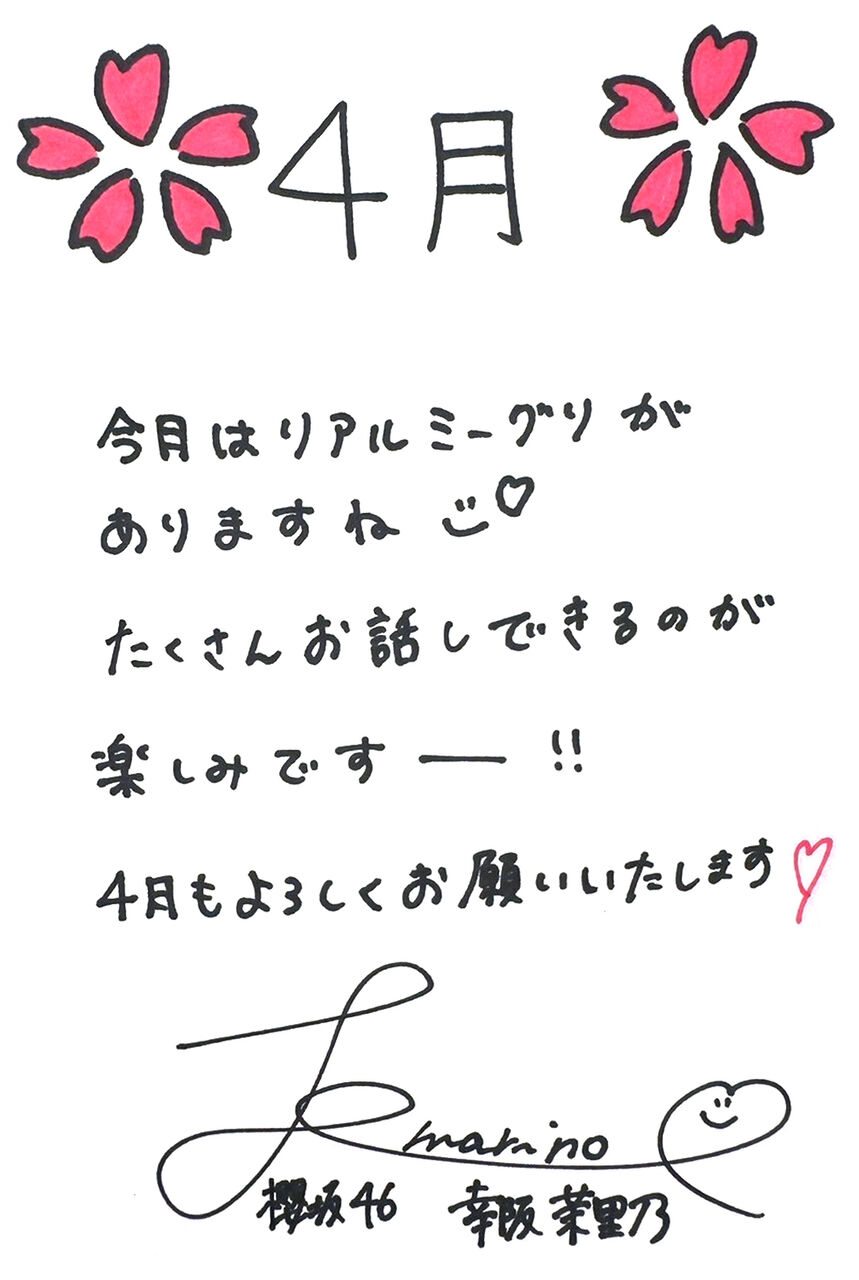 4月
今月はリアルミーグリが
ありますね
たくさんお話しできるのが
楽しみですー!!
4月もよろしくお願いいたします
marino
櫻坂46 幸阪茉里乃